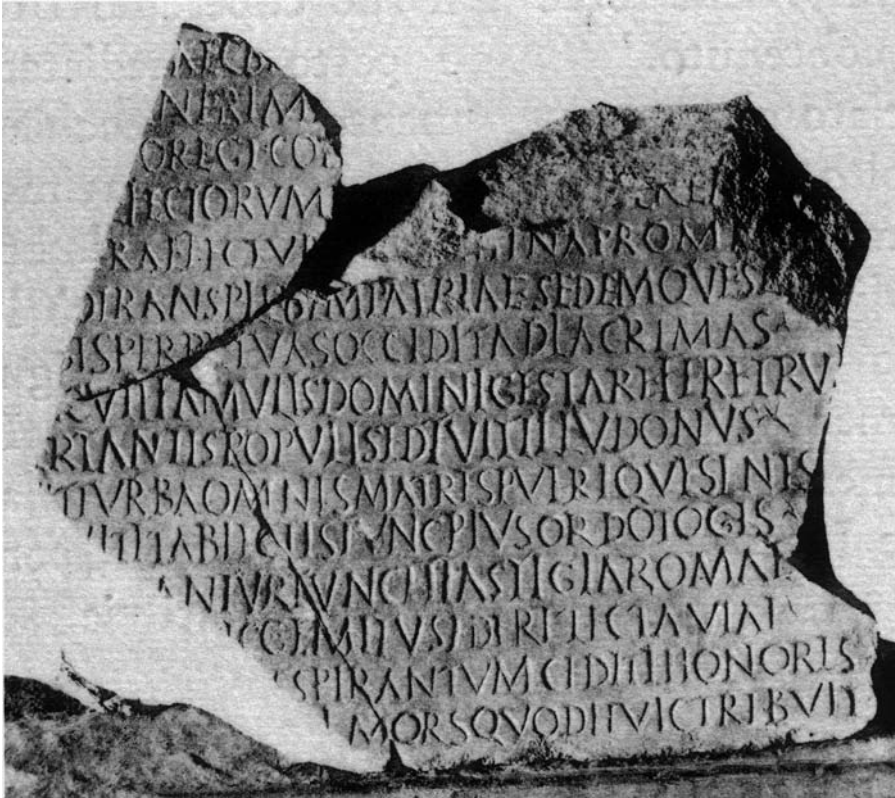 NERIM
OREGI COM
FECTORVM
RAEFECTVR GINA PROM
ODERANS PLEBEM PATRIAE SEDEMQVE SE
BIS PERPETVAS OCCIDIT AD LACRIMAS
CVIT FAMVLIS DOMINI GESTARE FERETRV
ERTANTIS POPVLI SED FVIT ILLVD ONVS
IT TVRBA OMNIS MATRES PVERIQVE SENES
VIT ET ABIECTIS TVNC PIVS ORDO TOGIS
ANTVR TVNC ET FASTIGIA ROMAE
C GEMITVS EDERE TECTA VIAE
SPIRANTVM CEDITE HONORES
MORS QVOD HVIC TRIBVIT